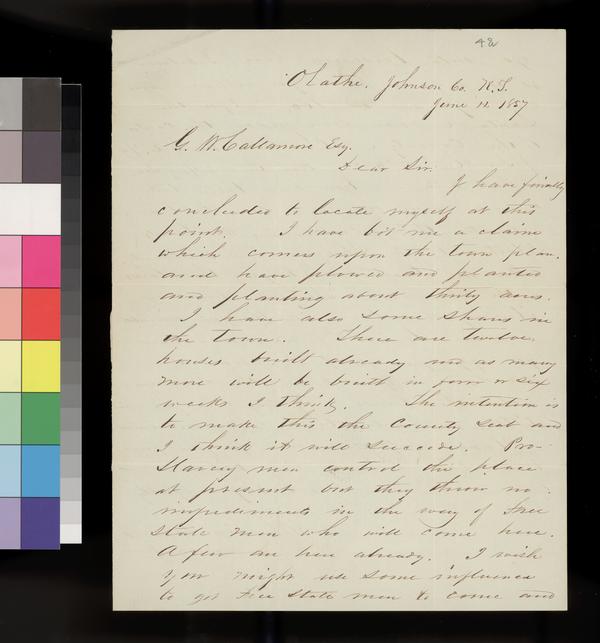 42
Olathe, Johnson Co. K.T.
June 12 1857
G. W. Collamore Esq.
Dear Sir.
I have finally
concluded to locate myself at this
point. I have bot me a claim
which corners upon the town plan.
and have plowed and planted
and planting about thirty acres.
I have also some shares in
the town. There are twelve
houses built already and as many
more will be built in four or six
weeks I think. The intention is
to make this the County Seat and
I think it will succeede. Pro-
Slavery men control the place
at present but they throw no
impediments in the way of Free
state men who will come here.
A few are here already. I wish
you might use some influence
to get Free State men to come and